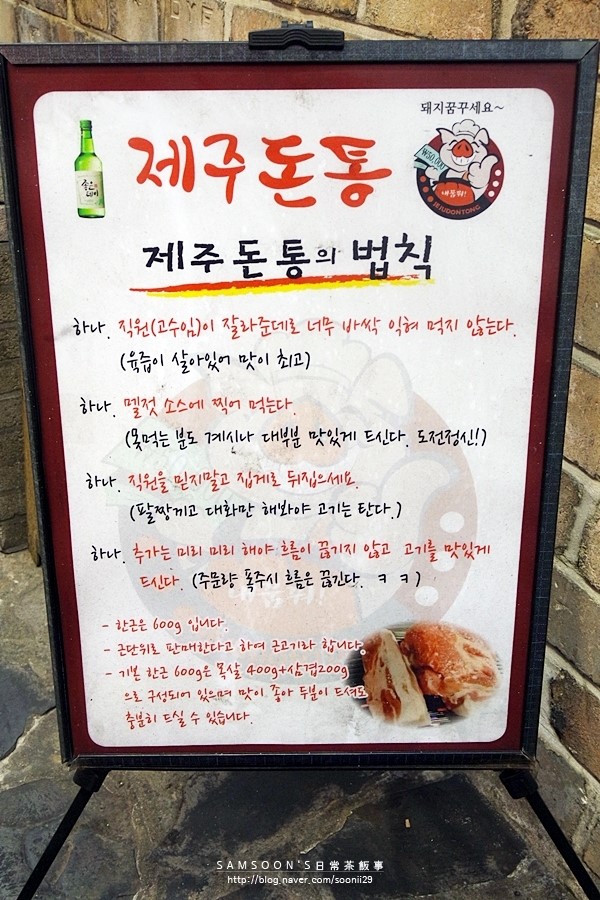 돼지꿈꾸세요~
좋은데이
제주돈통
₩50,000
내품위!
JEJUDONTONG
제주돈통의 법칙
하나. 직원(고수임)이 잘라준데로 너무 바싹 익혀 먹지 않는다.
(육즙이 살아있어 맛이 최고)
하나. 멜젓 소스에 찍어 먹는다.
(못먹는 분도 계시나 대부분 맛있게 드신다. 도전정신!)
하나. 직원을 믿지말고 집게로 뒤집으세요.
(팔짱끼고 대화만 해봐야 고기는 탄다.)
하나. 추가는 미리 미리 해야 흐름이 끊기지 않고 고기를 맛있게
드신다. (주문량 폭주시 흐름은 끊긴다. ㅋ ㅋ)
- 한근은 600g 입니다.
- 근단위로 판매한다고 하여 근고기라 합니다.
- 기본 한근 600g은 목살 400g+삼겹200g
으로 구성되어 있으며 맛이 좋아 두분이 드셔도
충분히 드실 수 있습니다.
SAMSOON'S日常茶飯事
http://blog.naver.com/soonii29